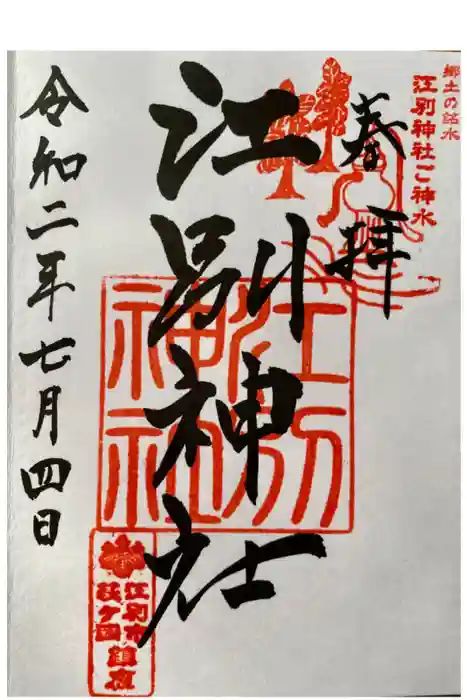 郷土の銘水
江別神社ご神水
奉拝
江別神社
江別
神社
令和二年七月四日
江別市
萩ヶ岡
鎮座